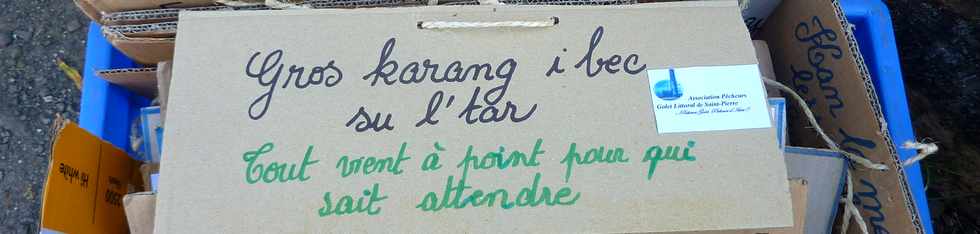 Gros karang i bec
su l'tar
Tout vent à point pour qui
sait attendre
Association Pêcheurs
Galet Littoral de Saint-Pierre
Hi white